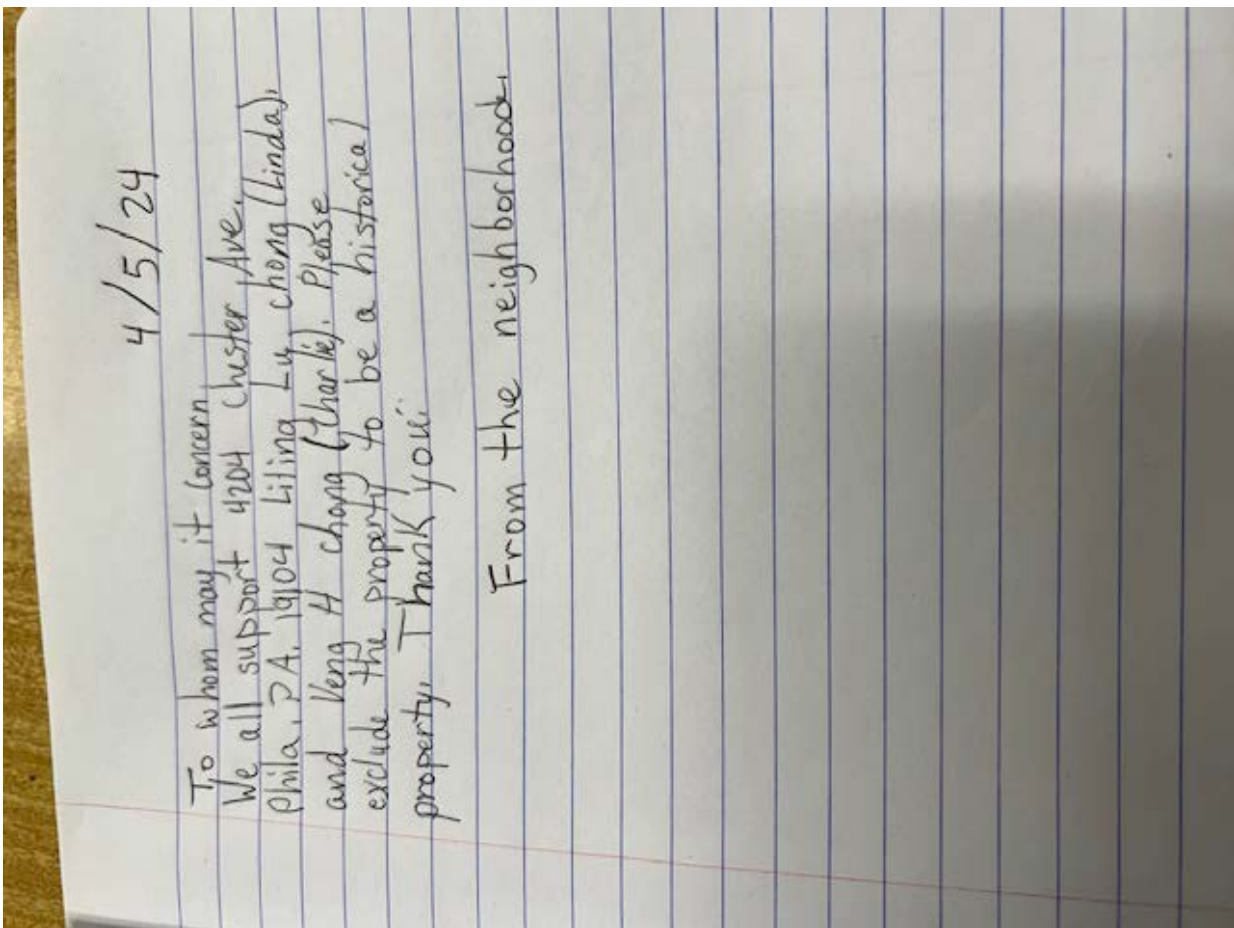 4/5/24
To whom may it concern
We all support 4204 chester Ave.
Phila, PA. 19104 Liling Lu chong (Linda).
and Veng H chong (Charlie). Please
exclude the property to be a historical
property. Thank you.
From the neighborhood.